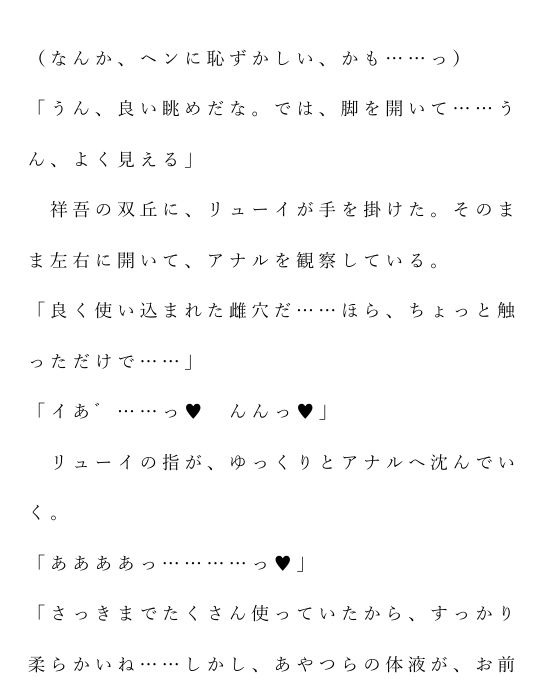 （なんか、ヘンに恥ずかしい、かも……っ）
「うん、良い眺めだな。では、脚を開いて……う
ん、よく見える」
　祥吾の双丘に、リューイが手を掛けた。そのま
ま左右に開いて、アナルを観察している。
「良く使い込まれた雌穴だ……ほら、ちょっと触
っただけで……」
「イあ゛……っ♥　んんっ♥」
　リューイの指が、ゆっくりとアナルへ沈んでい
く。
「ああああっ…………っ♥」
「さっきまでたくさん使っていたから、すっかり
柔らかいね……しかし、あやつらの体液が、お前